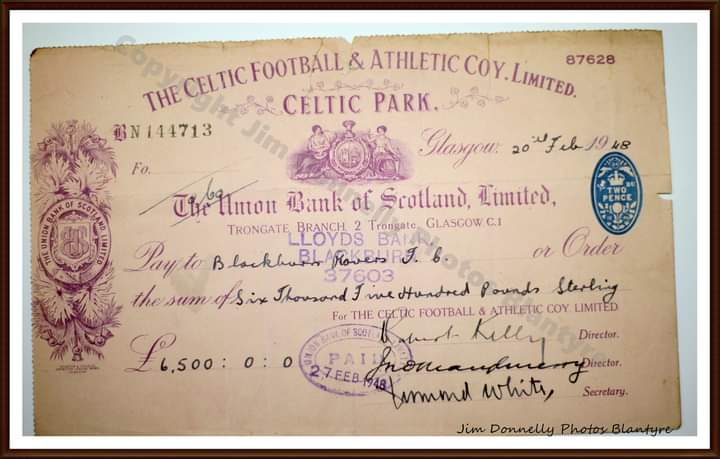 THE CELTIC FOOTBALL & ATHLETIC COY. LIMITED.
87628
CELTIC PARK.
BN144713
Glasgow, 20th Feb 1948
Fo.
The Union Bank of Scotland, Limited,
TRONGATE BRANCH, 2 Trongate, GLASGOW C.1
TWO PENCE
THE UNION BANK OF SCOTLAND LIMITED
LLOYDS BANK
BLACKBURN
37603
Pay to Blackburn Rovers F. C. or Order
the sum of Six Thousand Five Hundred Pounds Sterling
For THE CELTIC FOOTBALL & ATHLETIC COY. LIMITED
Robert Kelly Director.
£6,500 : 0 : 0
UNION BANK OF SCOTLAND LIMITED
PAID
27 FEB 1948
Director.
Desmond White, Secretary.
Copyright Jim Donnelly Photos Blantyre
Jim Donnelly Photos Blantyre